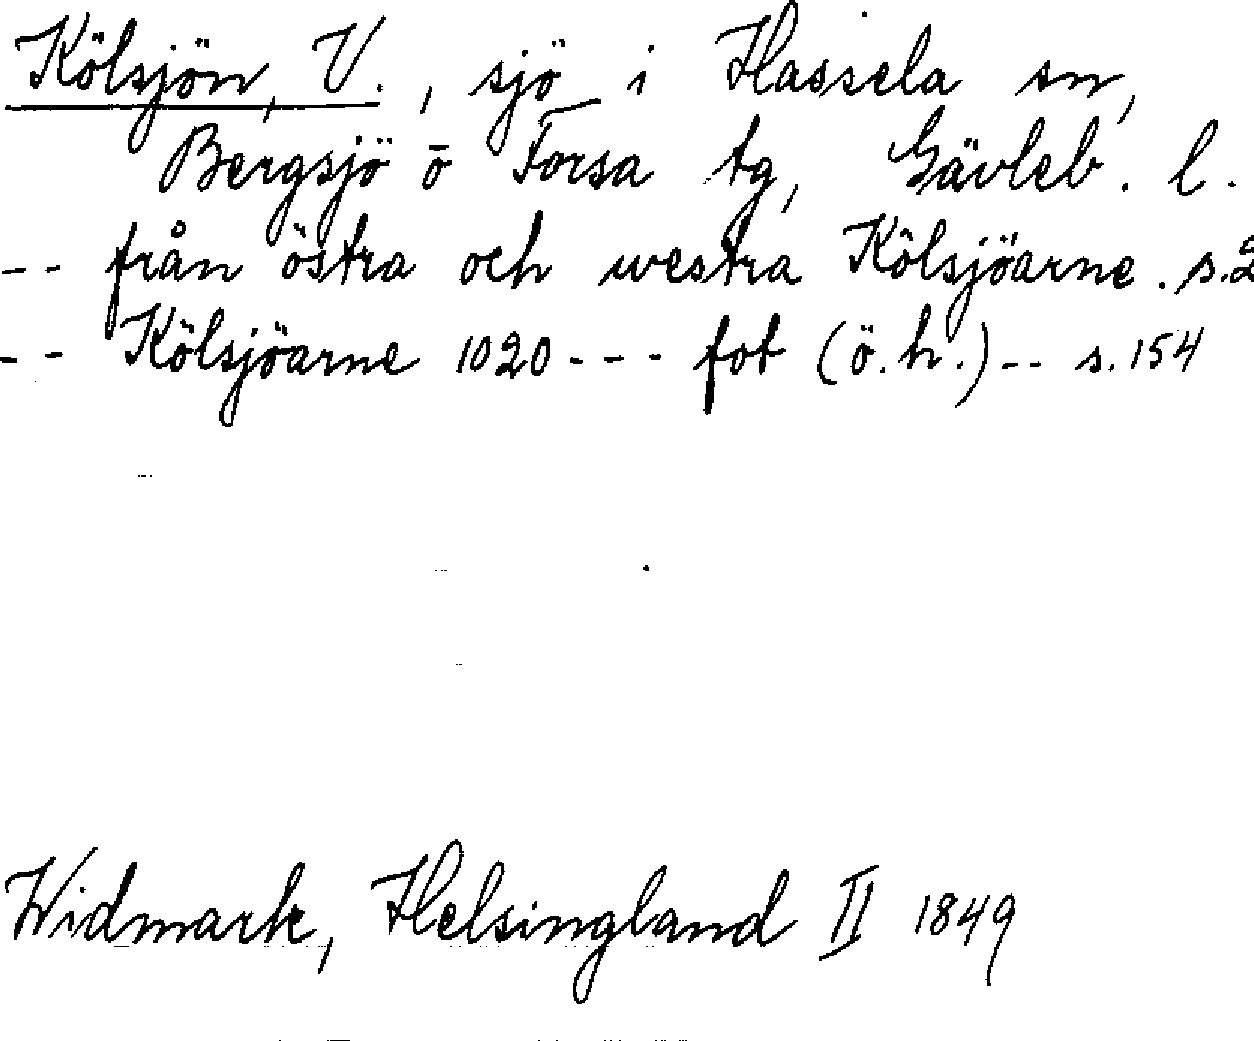 Kölsjön, V., sjö i Hassela sn,
Bergsjö o Forsa tg, Gävleb. l.
-- från östra och westra Kölsjöarne. s.2
-- Kölsjöarne 1020--- fot (ö.h.)-- s.154
Widmark, Helsingland II 1849